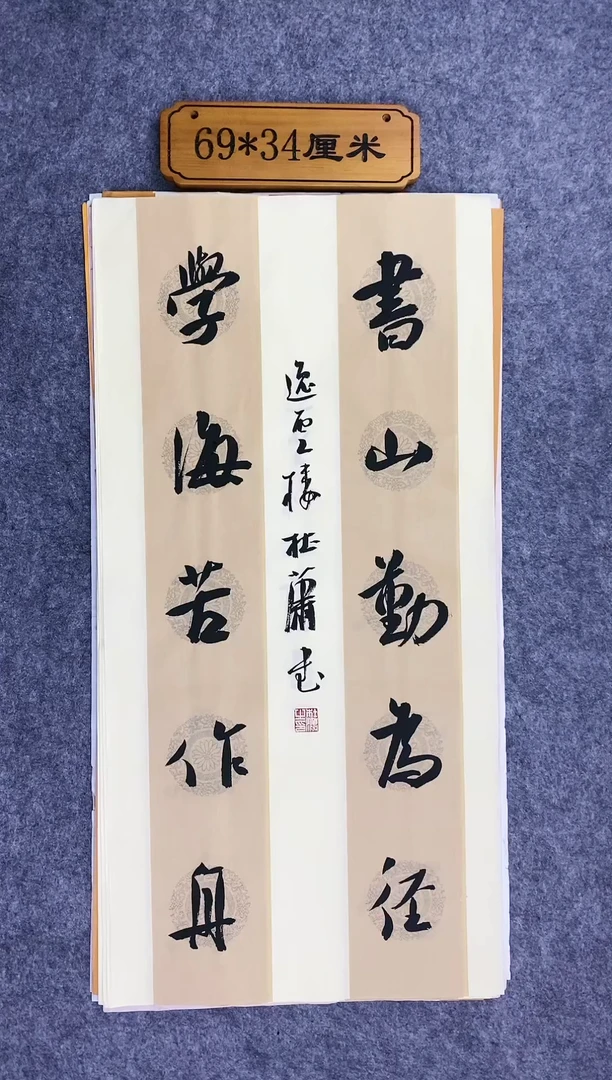 69*34厘米
書山勤為径
學海苦作舟
逸雲樓杜蕭書